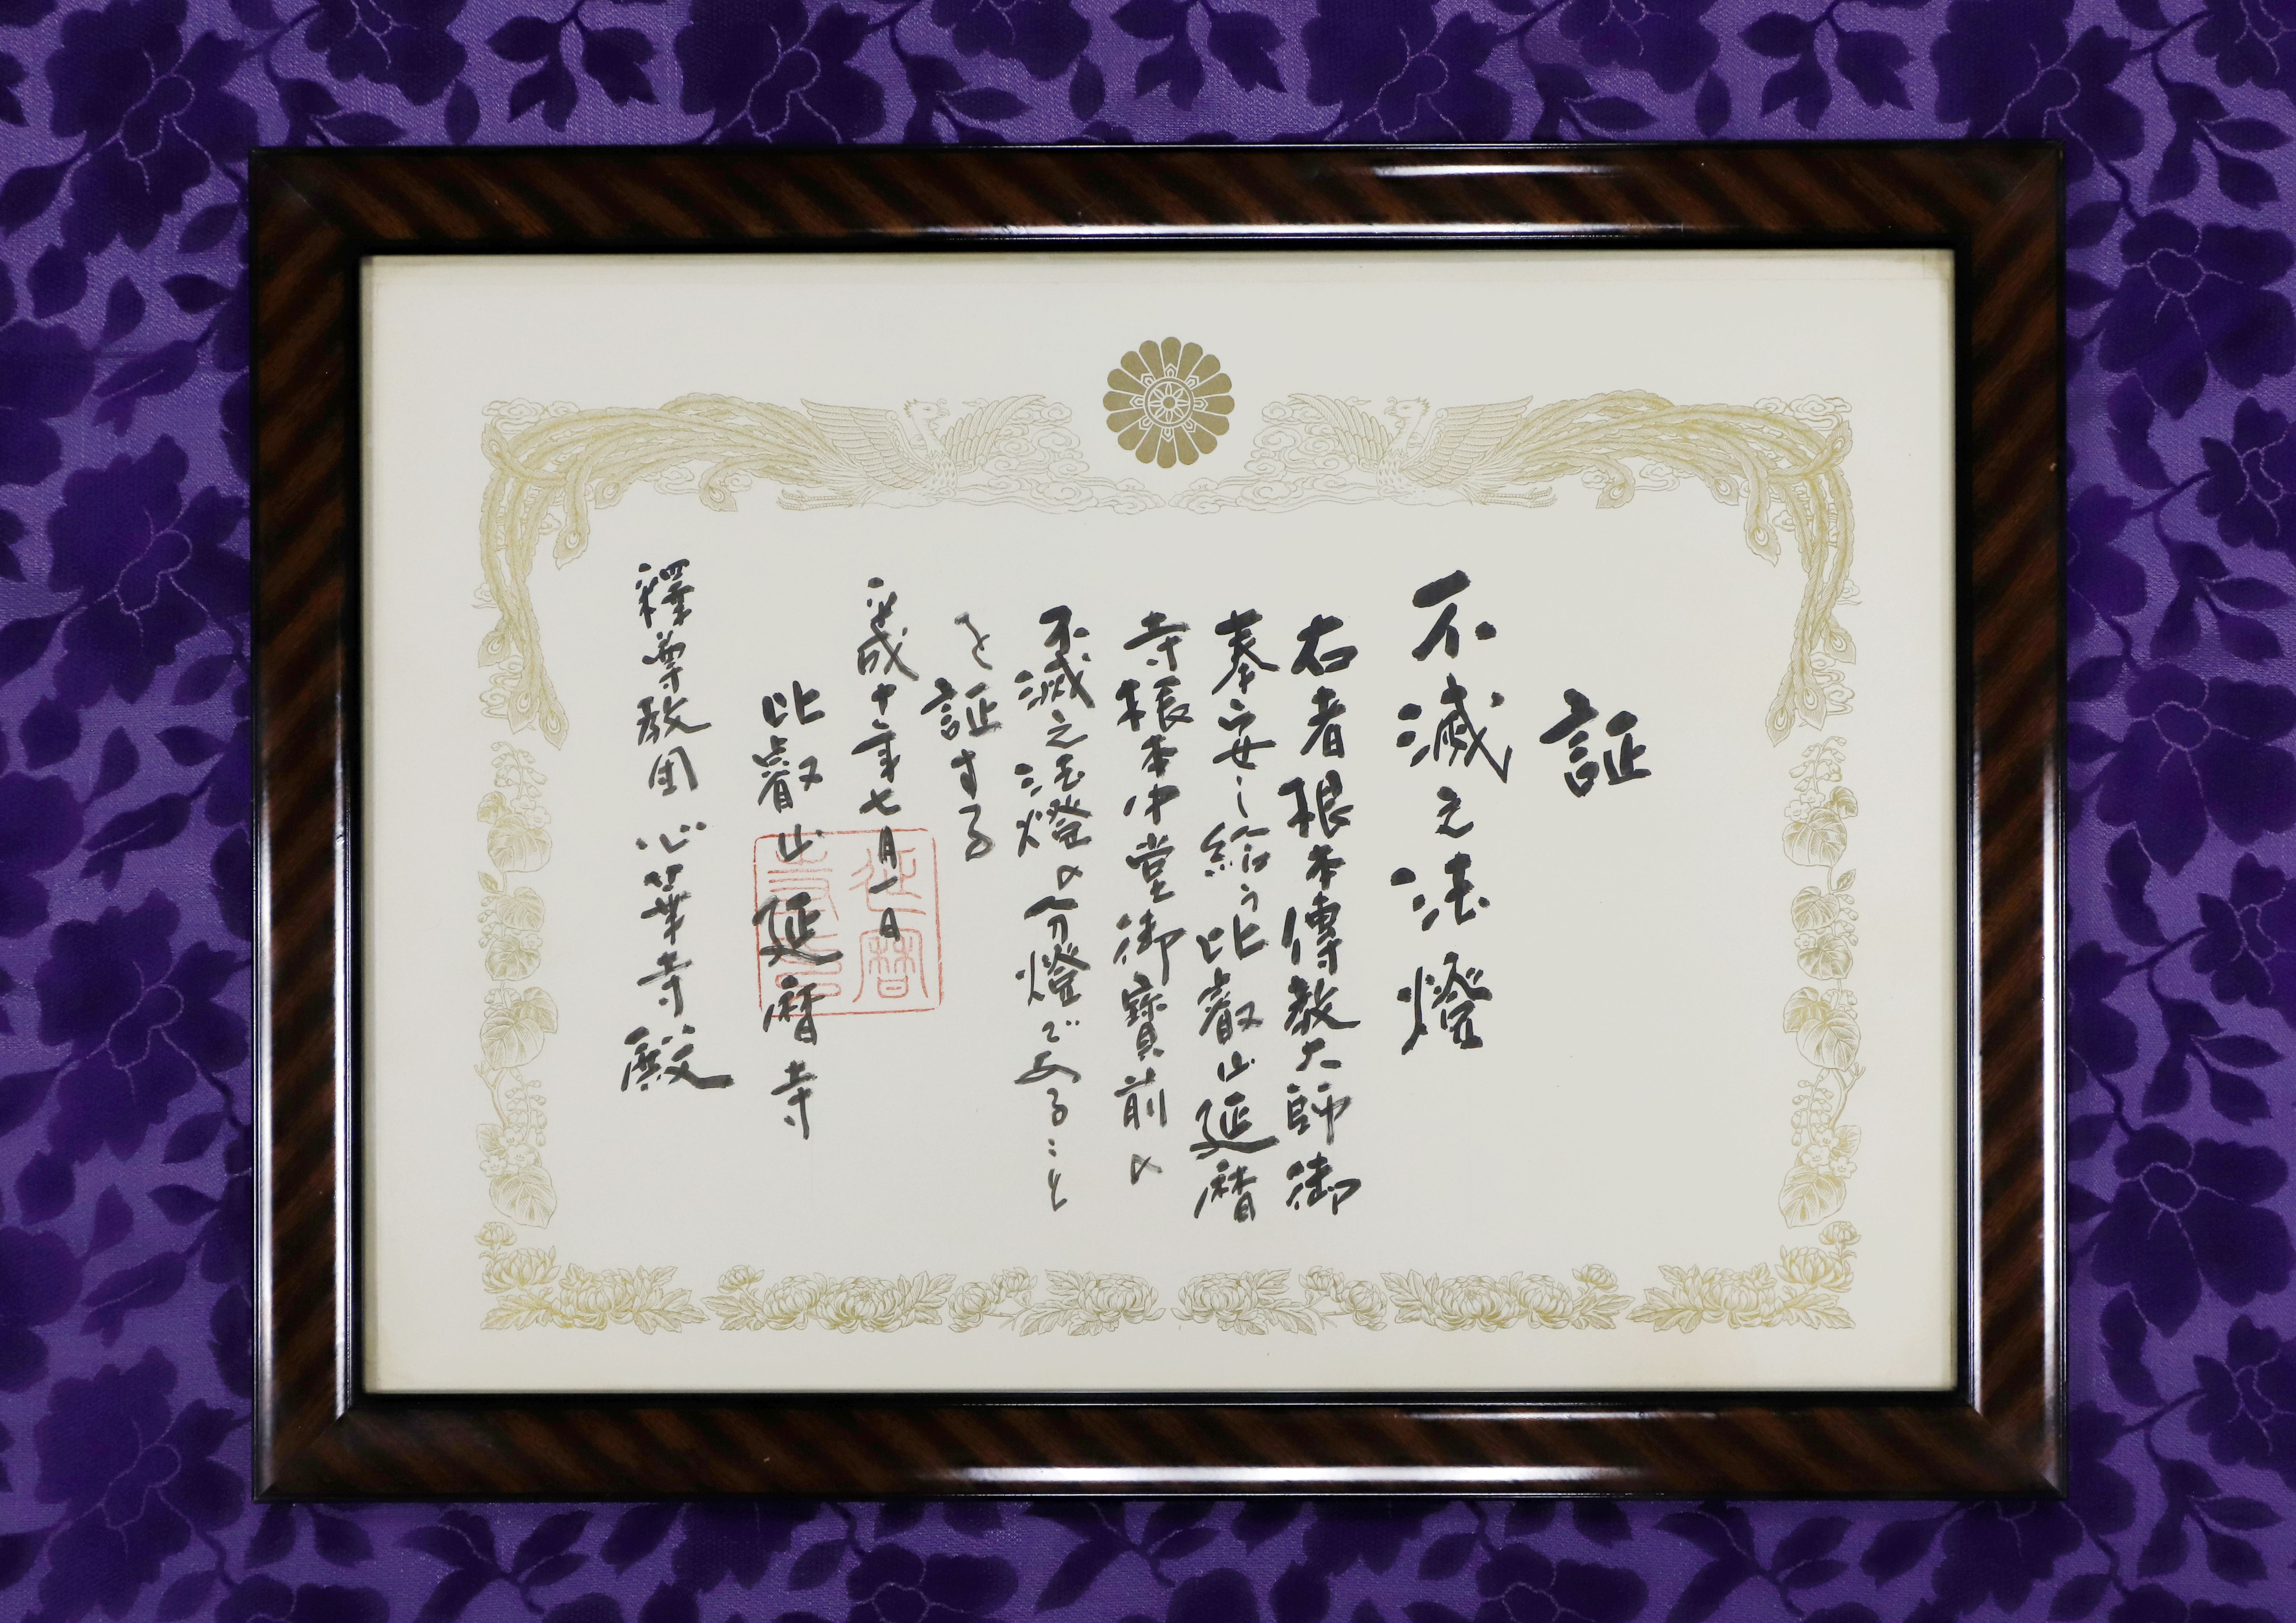 証
不滅之法燈
右者根本傳教大師御
奉安し給う比叡山延暦
寺根本中堂御寶前の
不滅之法燈の分燈であること
を証する
平成十二年七月一日
比叡山延暦寺
延暦
寺印
釋尊教団心華寺殿